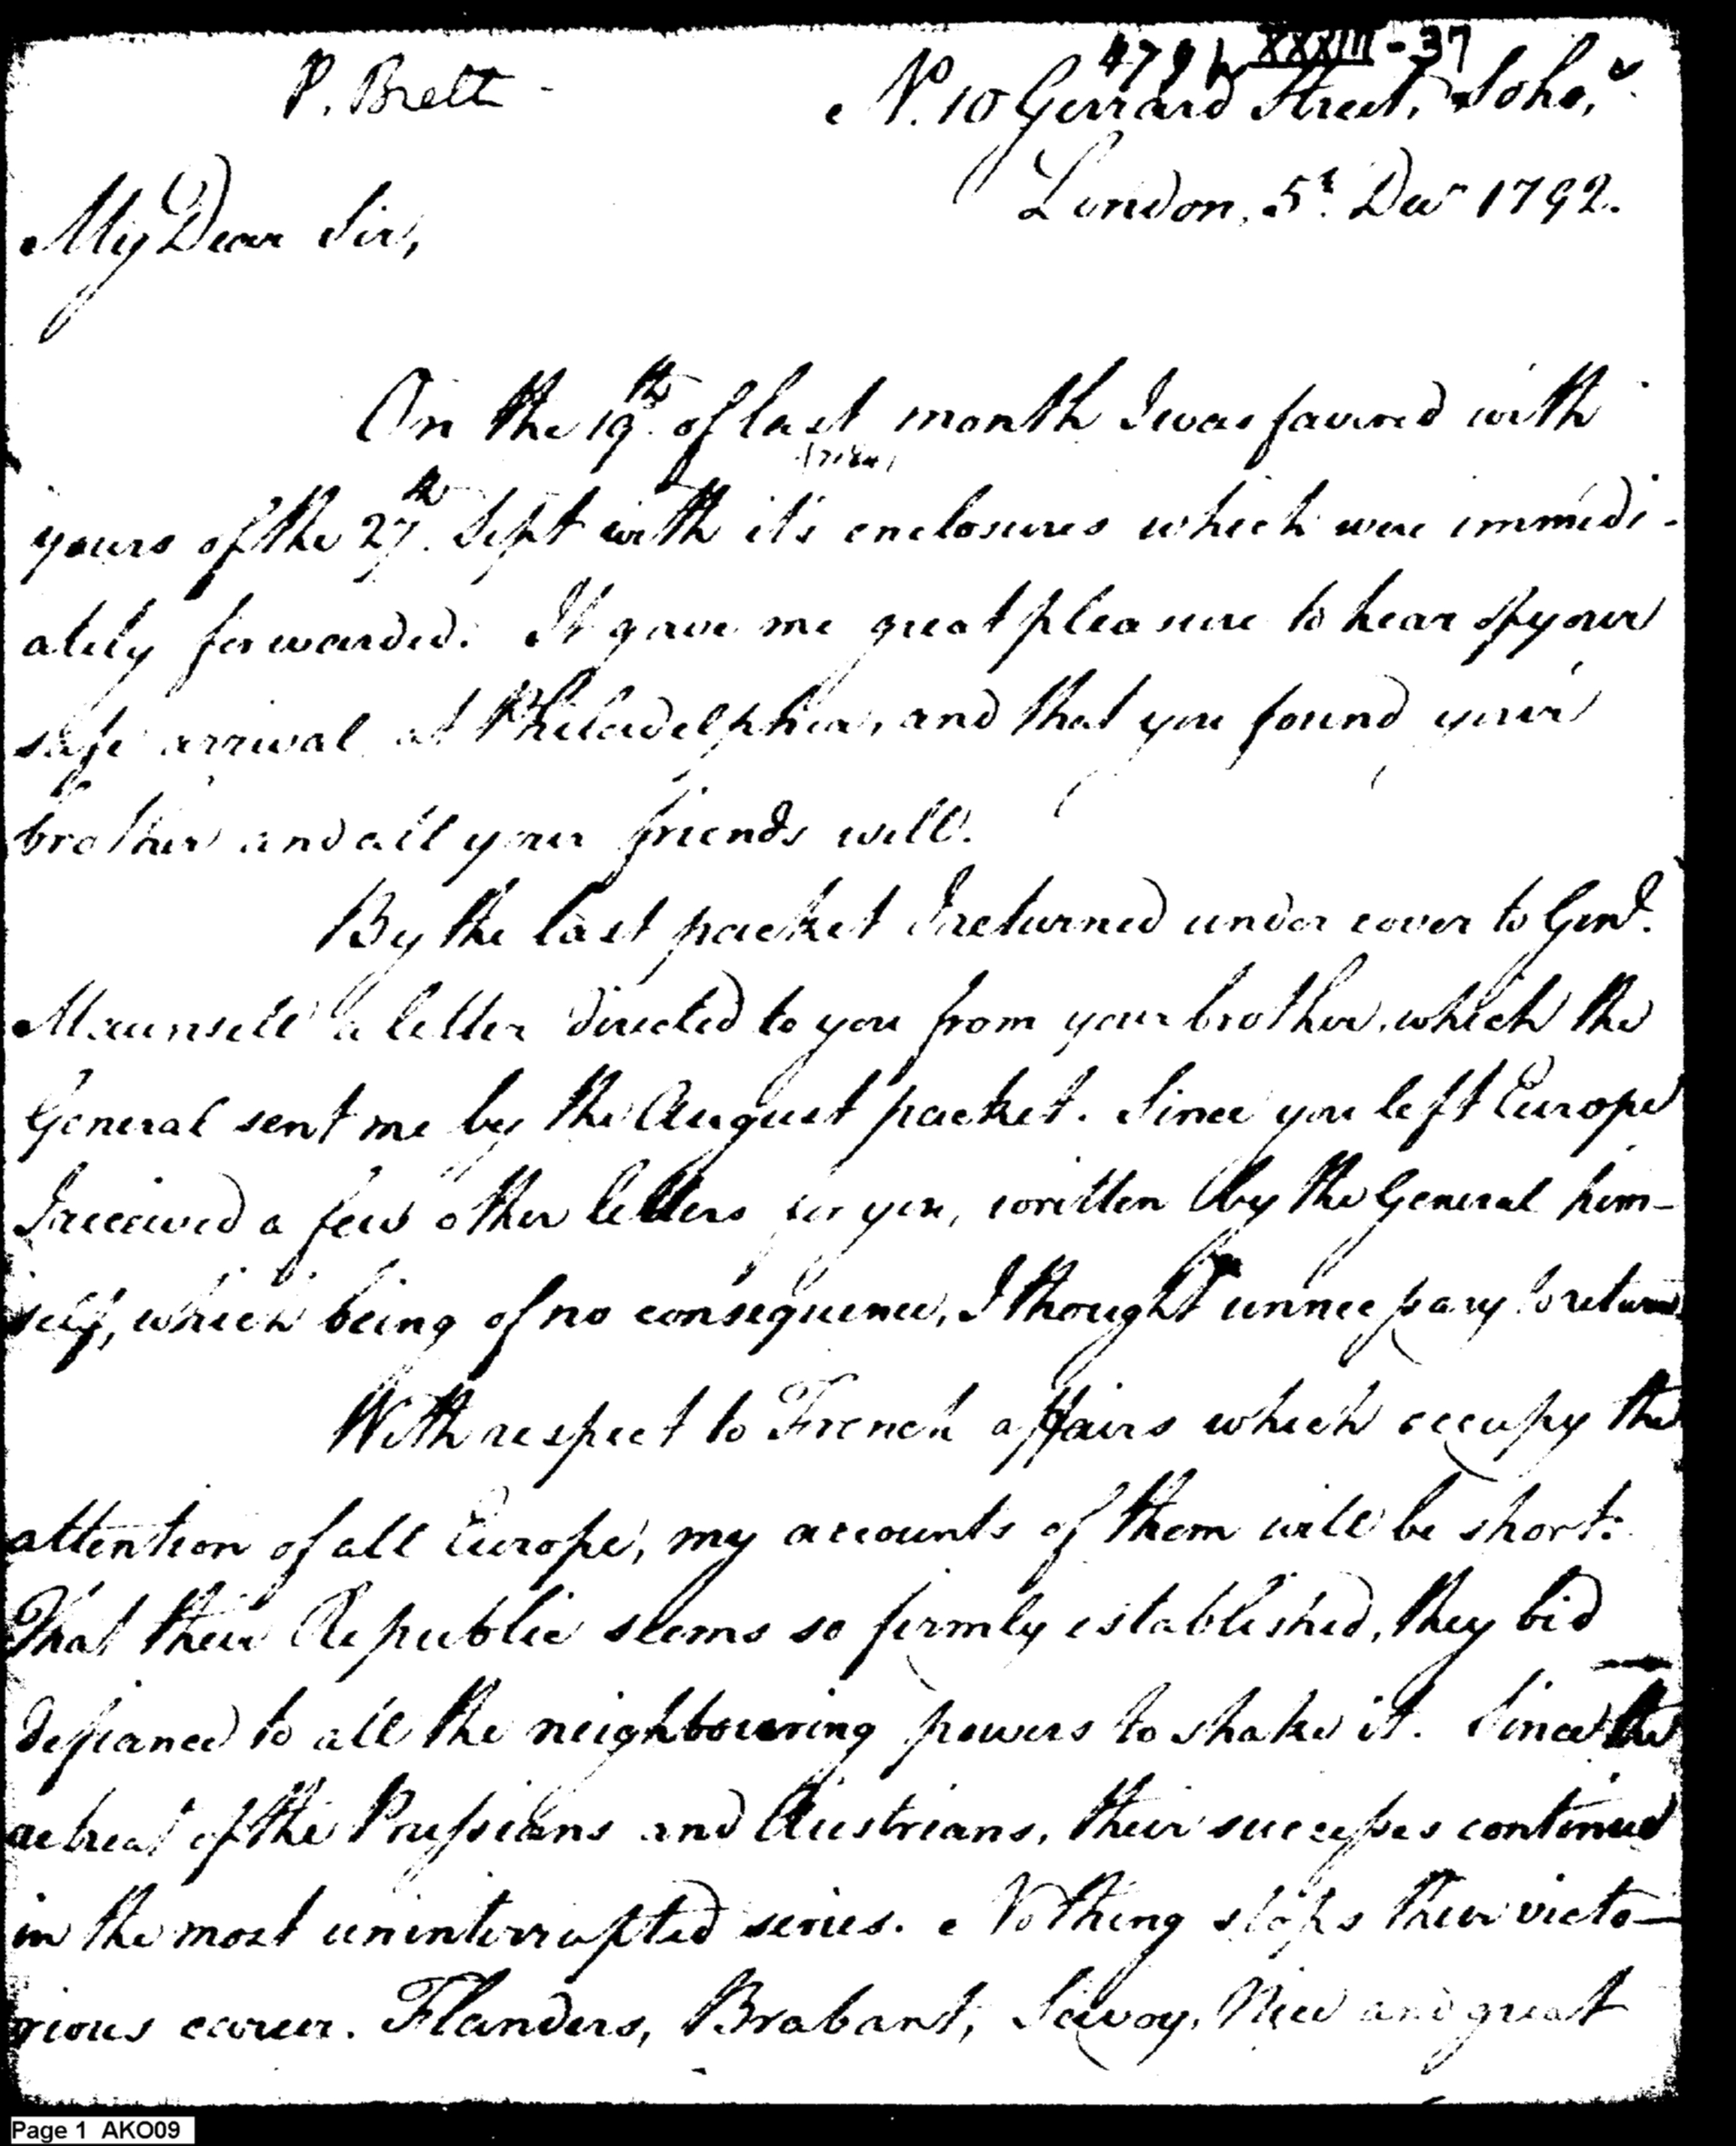 XXXIII-37
P. Brett
No. 10 Gerrard Street, Soho,
London, 5t. Decr 1792.
My Dear Sir,
On the 19th of last month I was favored with
yours of the 27th Sept with it's enclosures which were immedi-
ately forwarded. It gave me great pleasure to hear of your
safe arrival at Philadelphia, and that you found your
brother and all your friends well.
By the last packet I returned under cover to Genl.
Maunsell a letter directed to you from your brother, which the
General sent me by the August packet. Since you left Europe
I received a few other letters for you, written by the General him-
self, which being of no consequence, I thought unnecessary to return
With respect to French affairs which occupy the
attention of all Europe, my accounts of them will be short.
That their Republic seems so firmly established, they bid
defiance to all the neighbouring powers to shake it. Since the
retreat of the Prussians and Austrians, their successes continued
in the most uninterrupted series. Nothing stops their victo-
rious career. Flanders, Brabant, Savoy, Nice and great
Page 1 AKO09